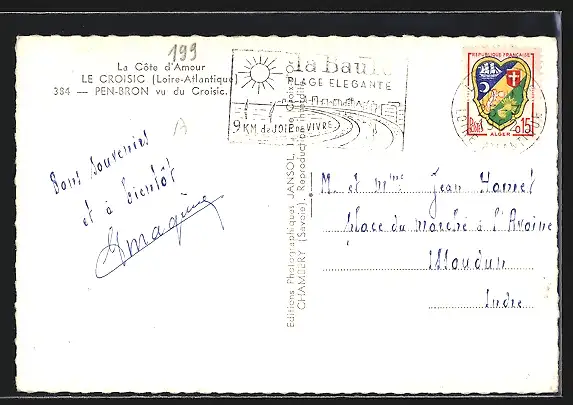 199
La Côte d'Amour
LE CROISIC (Loire-Atlantique)
384 — PEN-BRON vu du Croisic.
la baule
PLAGE ELEGANTE
9 KM. de JOIE DE VIVRE
REPUBLIQUE FRANÇAISE
POSTES
0,15
ALGER
A
Bons souvenirs
et à bientôt
Editions Photographiques JANSOL, La Croix
CHAMBERY (Savoie). Reproduction interdite
M. et Mme Jean Hamet
Place du Marché à l'Avoine
Issoudun
Indre